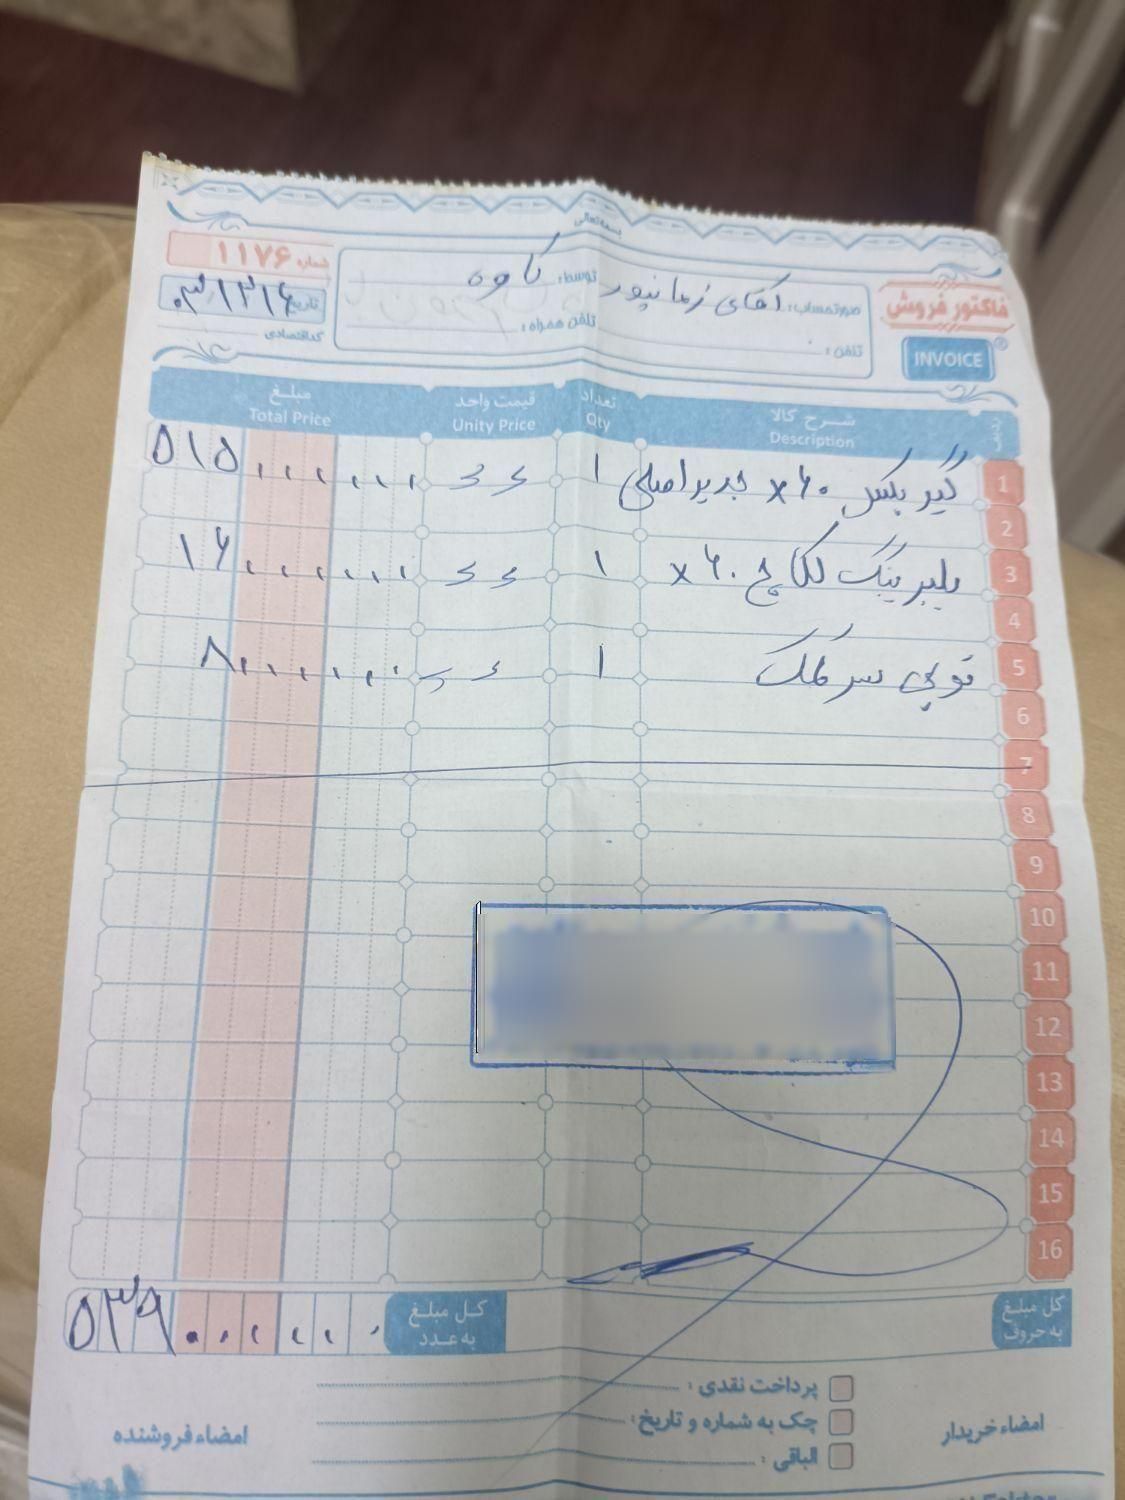 بسمه تعالی
فاکتور فروش
INVOICE
صورتحساب: آقای زمانپور توسط: کاوه
تلفن: تلفن همراه:
شماره ۱۱۷۶
تاریخ
کد اقتصادی
ردیف شرح کالا تعداد قیمت واحد مبلغ
Description Qty Unity Price Total Price
1 گیربکس x۶۰ جدید اصلی ۱ ۵۱۵۰۰۰۰۰۰
2
3 بلبرینگ کلاچ x۶۰ ۱ ۱۶۰۰۰۰۰۰
4
5 توپی سر کمک ۱ ۸۰۰۰۰۰۰
6
7
8
9
10
11
12
13
14
15
16
کل مبلغ به حروف کل مبلغ به عدد ۵۳۹۰۰۰۰۰۰
پرداخت نقدی:
چک به شماره و تاریخ:
الباقی:
امضاء خریدار امضاء فروشنده